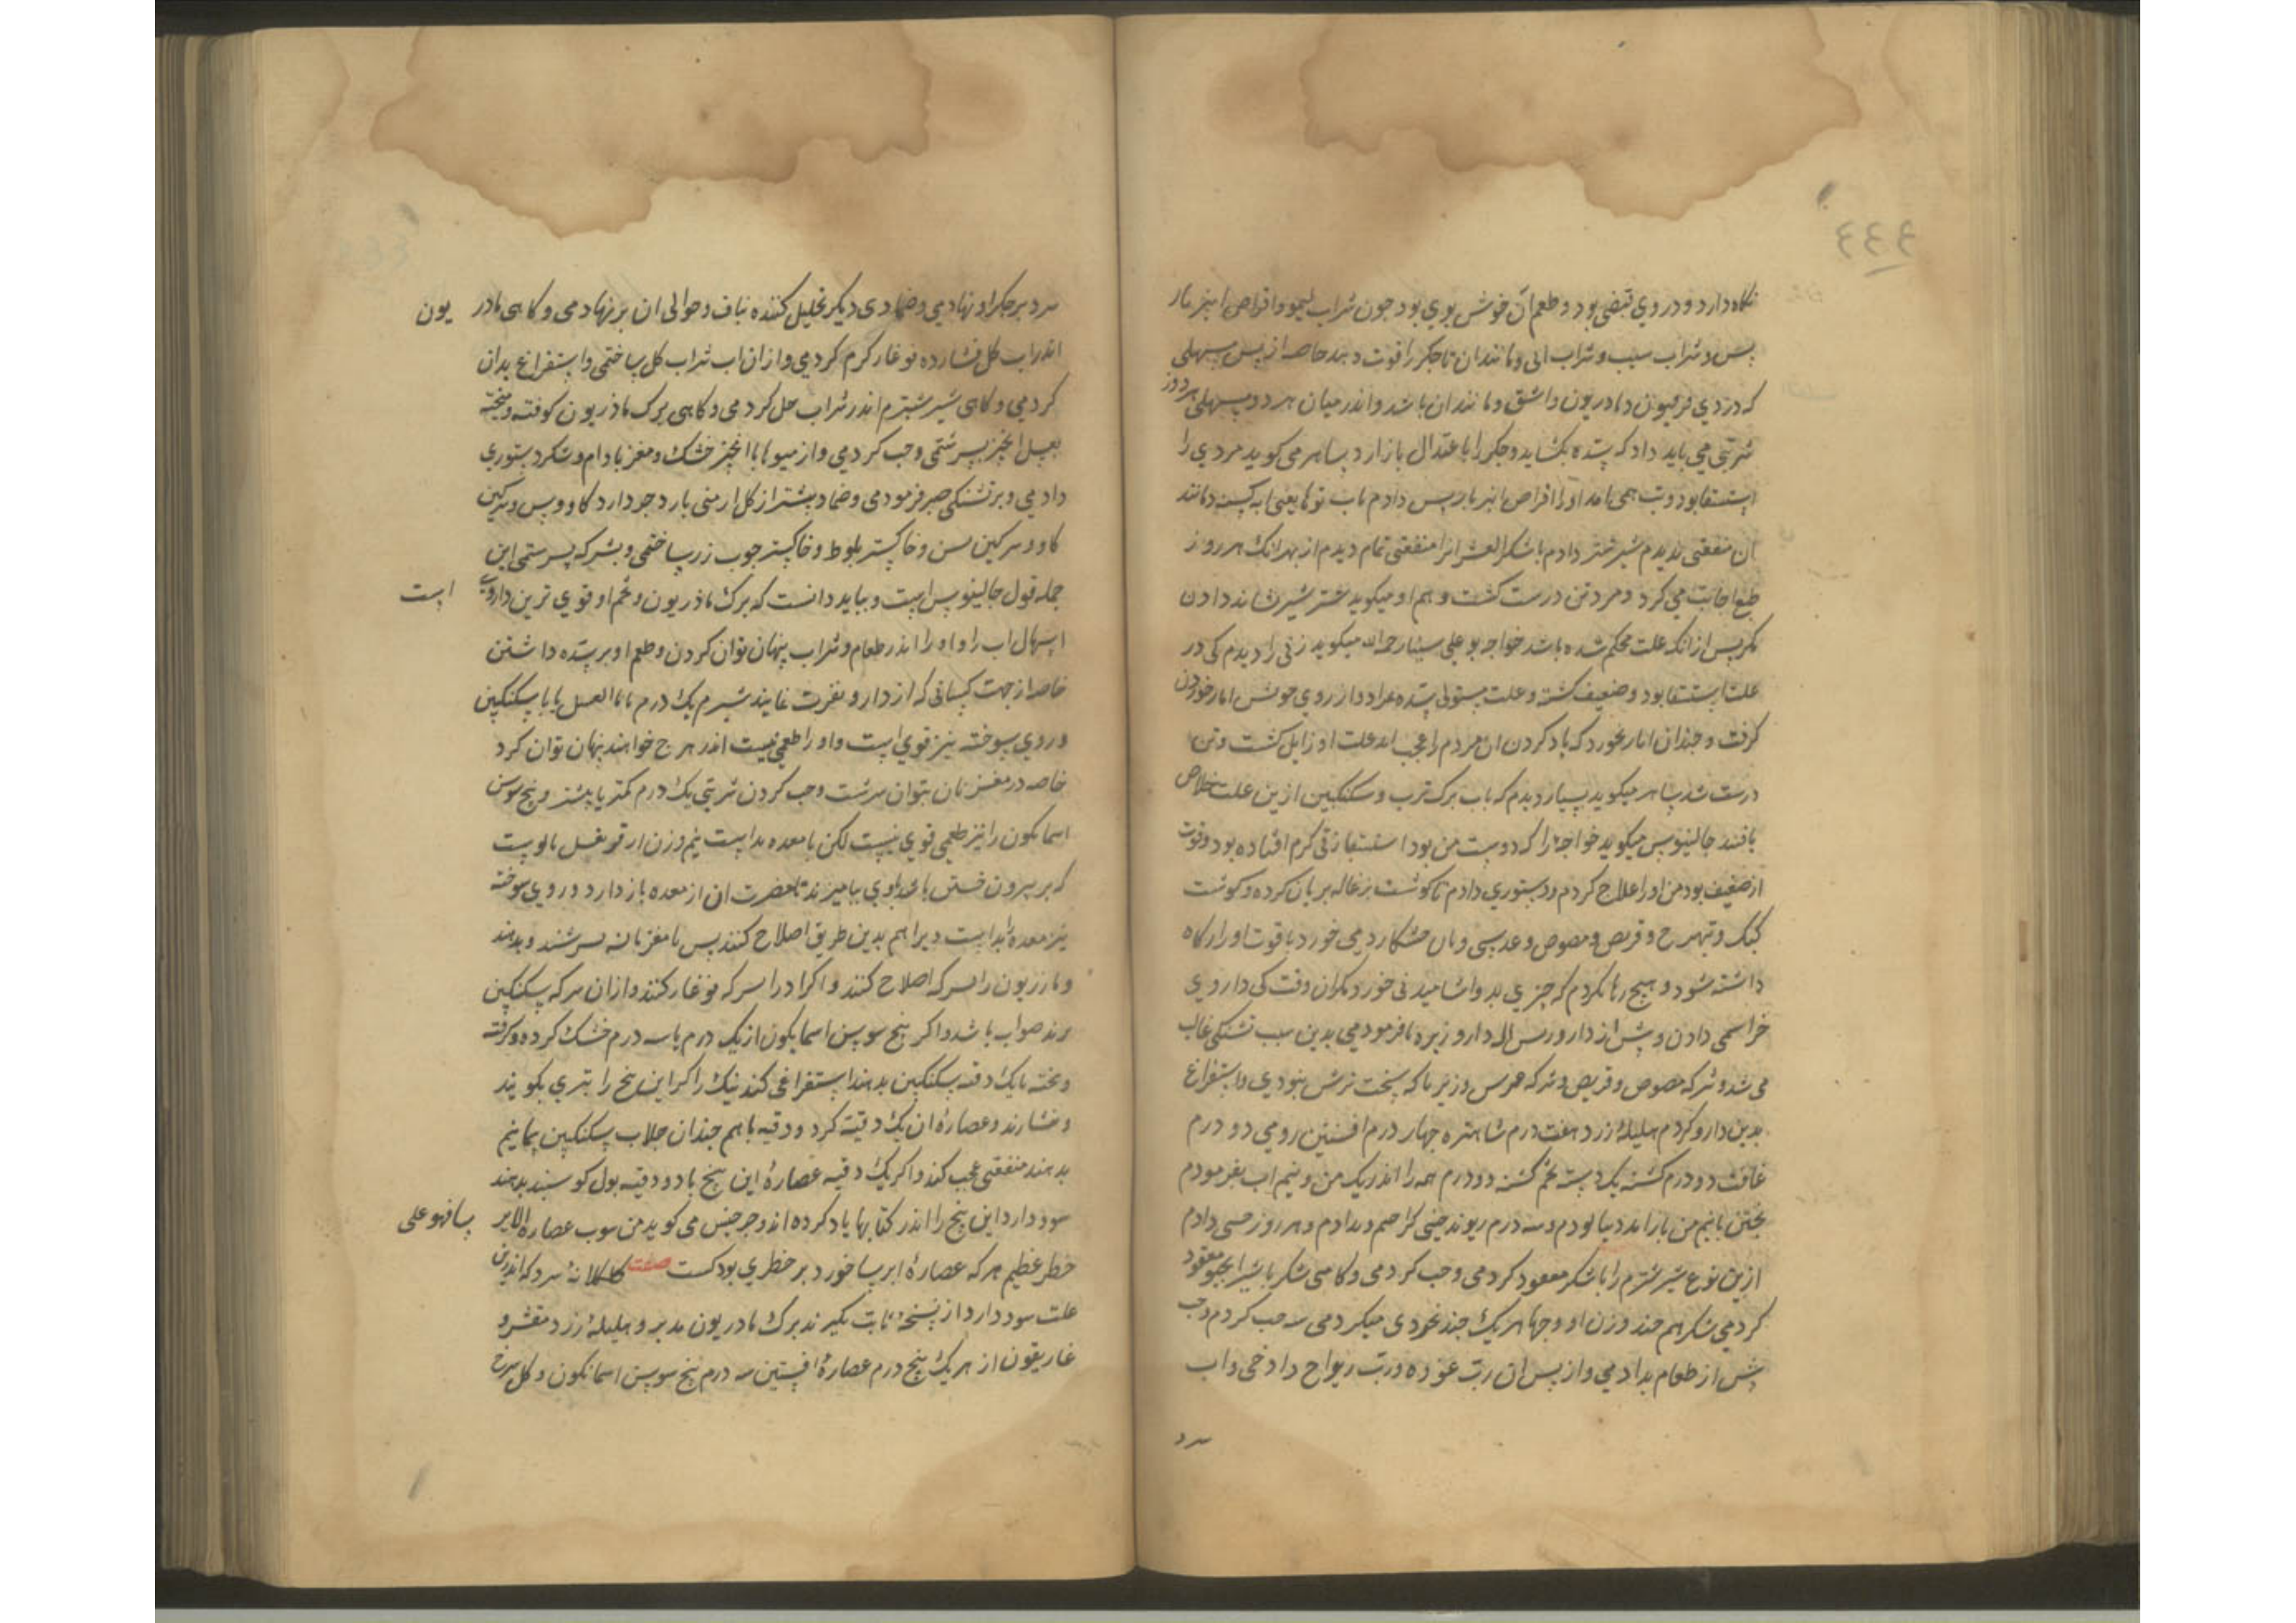 ٤٤٤
نکاه دارد و در وی قبضی بود و طعم آن خوش بوی بود جون شراب لیمو و اقراص امیر بار
پس و شراب سیب و شراب ابی و مانند ان تا جکر را قوت دهد خاصه از پس مسهلی
که در وی فرفیون و مادریون و اشق و مانند ان باشد و اندر میان هر دو مسهلی هر روز
شربتی می باید داد که سده بکشاید و جکر را باعتدال باز ارد بساهر می کوید مردی را
استسقا بود و تب همی امد او را اقراص انبر باریس دادم باب توکا یعنی اب کسنه و مانند
ان منفعتی ندیدم شیر شتر دادم با شکر العشر انرا منفعتی تمام دیدم از بهر انک هر روز
طبع اجابت می کرد و مرد تن درست کشت و هم او میکوید شتر شیر نشاید دادن
مکر پس از انکه علت محکم شده باشد خواجه بو علی سینا رحمه الله میکوید زنی را دیدم کی در
علت استسقا بود و ضعیف کشته و علت مستولی شده مراد او از روی خوش انار خوردن
کرفت و جندان انار بخورد که یاد کردن ان مردم را عجب اید علت او زایل کشت و تن
درست شد بساهر میکوید بسیار دیدم که باب برک ترب و سکنکبین ازین علت خلاص
یافتند جالینوس میکوید خواجه را که دوست من بود استسقا زقی کرم افتاده بود و قوت
او ضعیف بود من او را علاج کردم و دستوری دادم تا کوشت بزغاله بریان کرده و کوشت
کبک و تیهو ج و قریص و مصوص و عدسی و نان خشکار دمی خورد تا قوت او را نکاه
داشته شود و هیچ رها نکردم که چیزی بد و اشامیدنی خورد مکر ان وقت کی داروی
خواستمی دادن و پش از دارو و پس از دارو زیره با فرمودمی بدین سبب تشنکی غالب
می شد و سرکه مصوص و قریص و سرکه عدس و زیر با که سخت ترش نبودی و استفراغ
بدین دارو کردم هلیله زرد هفت درم شاهتره جهار درم افسنتین رومی دو درم
غافت دو درم کسنه یک دسته تخم کسنه دو درم همه را اندر یک من و نیم اب بفرمودم
پختن تا نیم من باز امد و بیالودم و سه درم ریوند جینی کراحیم و بدادم و هر روز حبی دادم
ازین نوع شیر شترم را با شکر معقود کردمی و حب کردمی و کاهی شکر با شیر انجیر معقود
کردمی شکر هم چند وزن او و حبها هر یک جند نخودی میکردمی سه حب کردم و حب
پش از طعام بدادمی و از پس ان رب غوره و رب ریواج دادمی و اب
سرد
سرد بر جکر او نهادمی و ضمادی دیکر تحلیل کننده بناف و حوالی ان بر نهادمی و کاهی مادر یون
اندر اب کل فشارده نو غار کرم کردمی و از ان اب شراب کل ساختمی و استفراغ بدان
کردمی و کاهی شیر شبترم اندر شراب حل کردمی و کاهی برک ماذریون کوفته و پخته
بعسل انجیز بسرشتمی و حب کردمی و از میوها با انجیز خشک و مغز بادام و شکر دستوری
دادمی و بر تشنکی صبر فرمودمی و ضماد بیشتر از کل ارمنی بارد جو دارد کاو و پس و سرکین
کاو و سرکین بس و خاکستر بلوط و خاکستر جوب زر ساختمی و بسرکه بسرستمی این
جمله قول جالینوس است و بباید دانست که برک ماذریون و تخم او قوی ترین داروی است
اسهال اب را و او را اندر طعام و شراب پنهان توان کردن و طعم او بر سده داشتن
خاصه از جهت کسانی که از دارو نفرت نمایند شبرم یک درم با ماالعسل یا با سکنکبین
و روی سوخته نیز قوی است و او را طعمی نیست اندر هرچ خواهند پنهان توان کرد
خاصه در مغز نان بتوان سرشت و حب کردن شربتی یک درم کمتر یا بیشتر و بیخ سوسن
اسمانکون را نیز طعمی قوی نیست لکن با معده بد است نیم وزن او قرنفل با او بست
که بر بیرون خستن با داروی بیامیزند تا مضرت ان از معده باز دارد و روی سوخته
نیز معده را بد است ویرا هم بدین طریق اصلاح کنند پس با مغز نان بسرشند و بدهند
و ماذریون را بسرکه اصلاح کنند و اکر او را بسرکه نو غار کنند و از ان سرکه سکنکبین
برند صواب باشد و اکر بیخ سوسن اسمانکون از یک درم تا سه درم خشک کرده و کوفته
و بخته با یک وقیه سکنکبین بدهند استفراغی کند نیک و اکر این بیخ را بتری بکویند
و بفشارند و عصاره ان یک وقیه کرد و وقیه با هم جندان جلاب سکنکبین پمانیم
بدهند منفعتی عجب کند و اکر یک وقیه عصاره این بیخ با دو وقیه بول کوسبند بدهند
سود دارد این بیخ را اندر کتابها یاد کرده اند و جرجس می کوید من سوب عصاره الایر سا فهو علی
خطر عظیم هر که عصاره ایرسا خورد بر خطری بود کست صفت کلکلانه سرد که اندرین
علت سود دارد از نسخه ثابت بکیرند برک ماذریون مدبر و هلیله زرد مقشر و
غاریقون از هر یک پنج درم عصاره افسنتین سه درم بیخ سوسن اسمانکون و کل سرخ